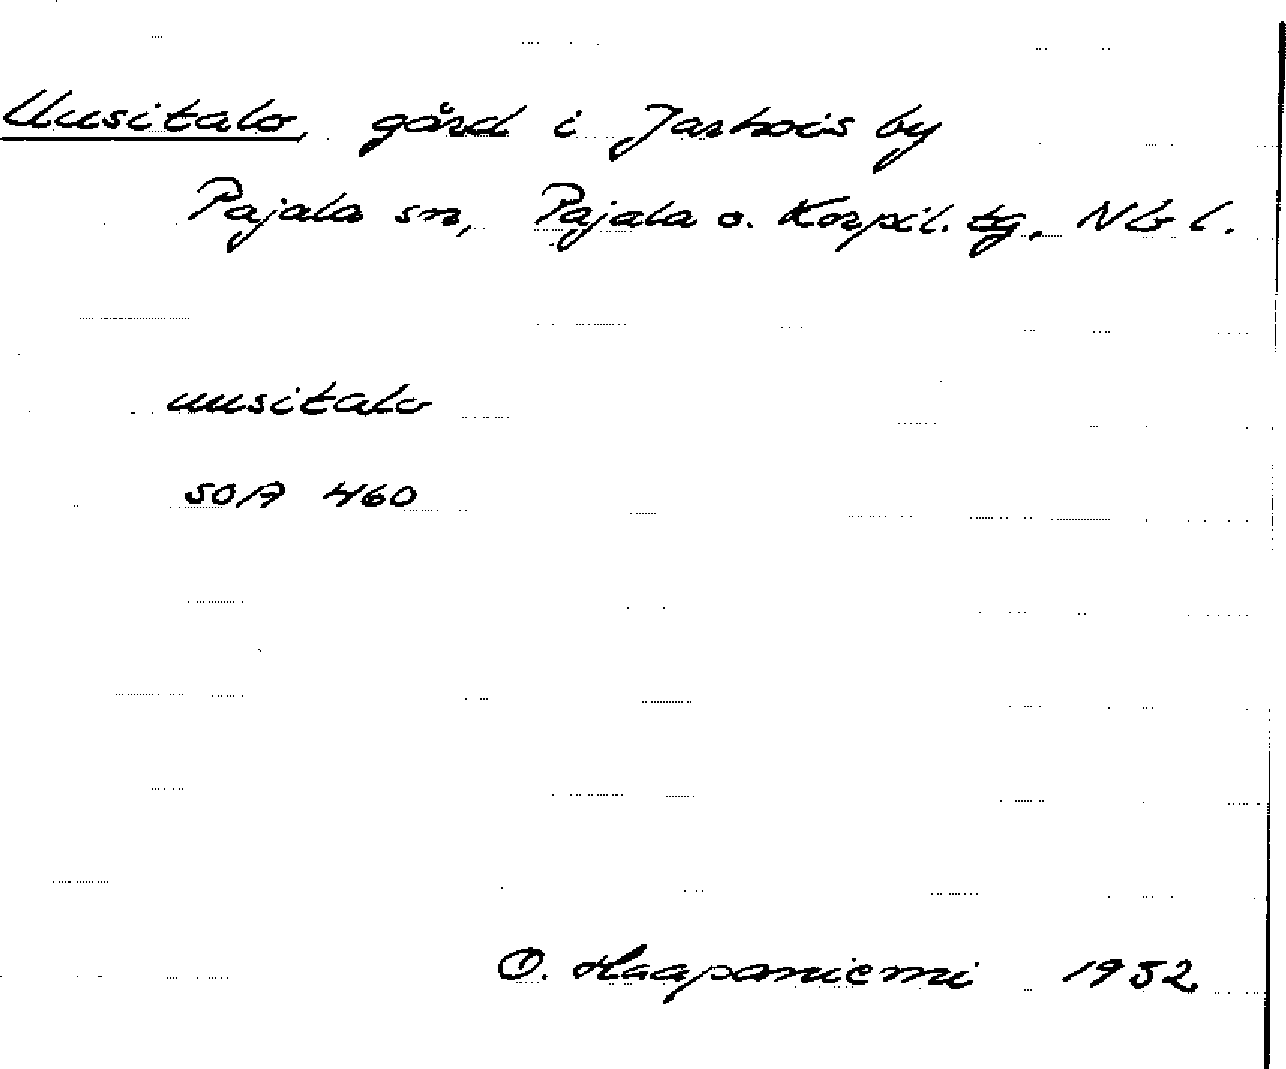 Uusitalo, gård i Jarhois by
Pajala sn, Pajala o. Korpil. tg, Nb l.
uusitalo
SOA 460
O. Haapaniemi 1952